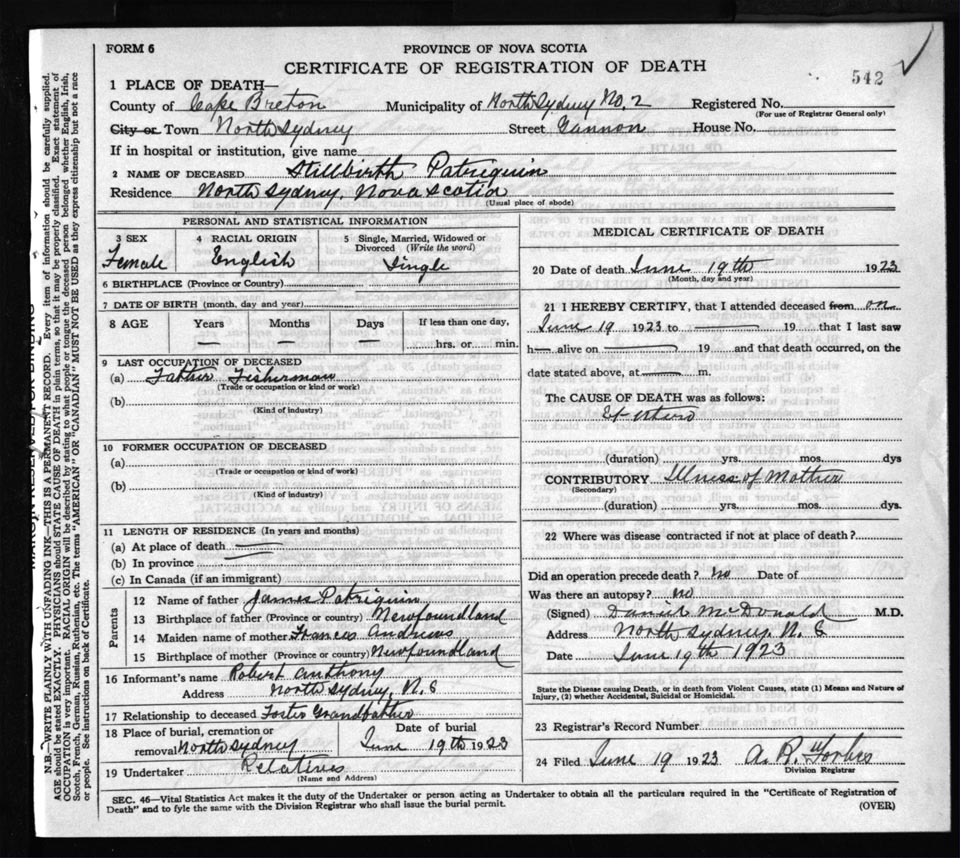 FORM 6
PROVINCE OF NOVA SCOTIA
CERTIFICATE OF REGISTRATION OF DEATH
542
1 PLACE OF DEATH—
County of Cape Breton Municipality of North Sydney No. 2 Registered No.
(For use of Registrar General only)
City or Town North Sydney Street Cannon House No.
If in hospital or institution, give name
2 NAME OF DECEASED Stillbirth Patriquin
Residence North Sydney, Nova Scotia
(Usual place of abode)
PERSONAL AND STATISTICAL INFORMATION
3 SEX Female
4 RACIAL ORIGIN English
5 Single, Married, Widowed or Divorced (Write the word) Single
6 BIRTHPLACE (Province or Country)
7 DATE OF BIRTH (month, day and year)
8 AGE Years — Months — Days — If less than one day, hrs. or min.
9 LAST OCCUPATION OF DECEASED
(a) Father Fisherman
(Trade or occupation or kind or work)
(b)
(Kind of industry)
10 FORMER OCCUPATION OF DECEASED
(a)
(Trade or occupation or kind of work)
(b)
(Kind of industry)
11 LENGTH OF RESIDENCE (In years and months)
(a) At place of death
(b) In province
(c) In Canada (if an immigrant)
Parents
12 Name of father James Patriquin
13 Birthplace of father (Province or country) Newfoundland
14 Maiden name of mother Frances Andrews
15 Birthplace of mother (Province or country) Newfoundland
16 Informant's name Robert Anthony
Address North Sydney, N.S
17 Relationship to deceased Foster Grandfather
18 Place of burial, cremation or removal North Sydney
Date of burial June 19th 1923
19 Undertaker Relatives
(Name and Address)
MEDICAL CERTIFICATE OF DEATH
20 Date of death June 19th 1923
(Month, day and year)
21 I HEREBY CERTIFY, that I attended deceased from on
June 19 1923 to — 19 that I last saw
h— alive on — 19 and that death occurred, on the
date stated above, at — m.
The CAUSE OF DEATH was as follows:
(duration) yrs. mos. dys
CONTRIBUTORY Illness of Mother
(Secondary)
(duration) yrs. mos. dys.
22 Where was disease contracted if not at place of death?
Did an operation precede death? no Date of
Was there an autopsy? no
(Signed) Daniel McDonald M.D.
Address North Sydney, N.S
Date June 19th 1923
State the Disease causing Death, or in death from Violent Causes, state (1) Means and Nature of
Injury, (2) whether Accidental, Suicidal or Homicidal.
23 Registrar's Record Number
24 Filed June 19 1923 A. R. Forbes
Division Registrar
SEC. 46—Vital Statistics Act makes it the duty of the Undertaker or person acting as Undertaker to obtain all the particulars required in the "Certificate of Registration of
Death" and to fyle the same with the Division Registrar who shall issue the burial permit.
(OVER)
MARGIN RESERVED FOR BINDING
N.B.—WRITE PLAINLY WITH UNFADING INK—THIS IS A PERMANENT RECORD. Every item of information should be carefully supplied.
AGE should be stated EXACTLY. PHYSICIANS should STATE CAUSE OF DEATH in plain terms, so that it may be properly classified. Exact statement of
OCCUPATION is very important. RACIAL ORIGIN will be described by stating to what people or tongue the deceased person belonged whether English, Irish,
Scotch, French, German, Russian, Ruthenian, etc. The terms "AMERICAN" OR "CANADIAN" MUST NOT BE USED as they express citizenship but not a race
or people. See instructions on back of Certificate.